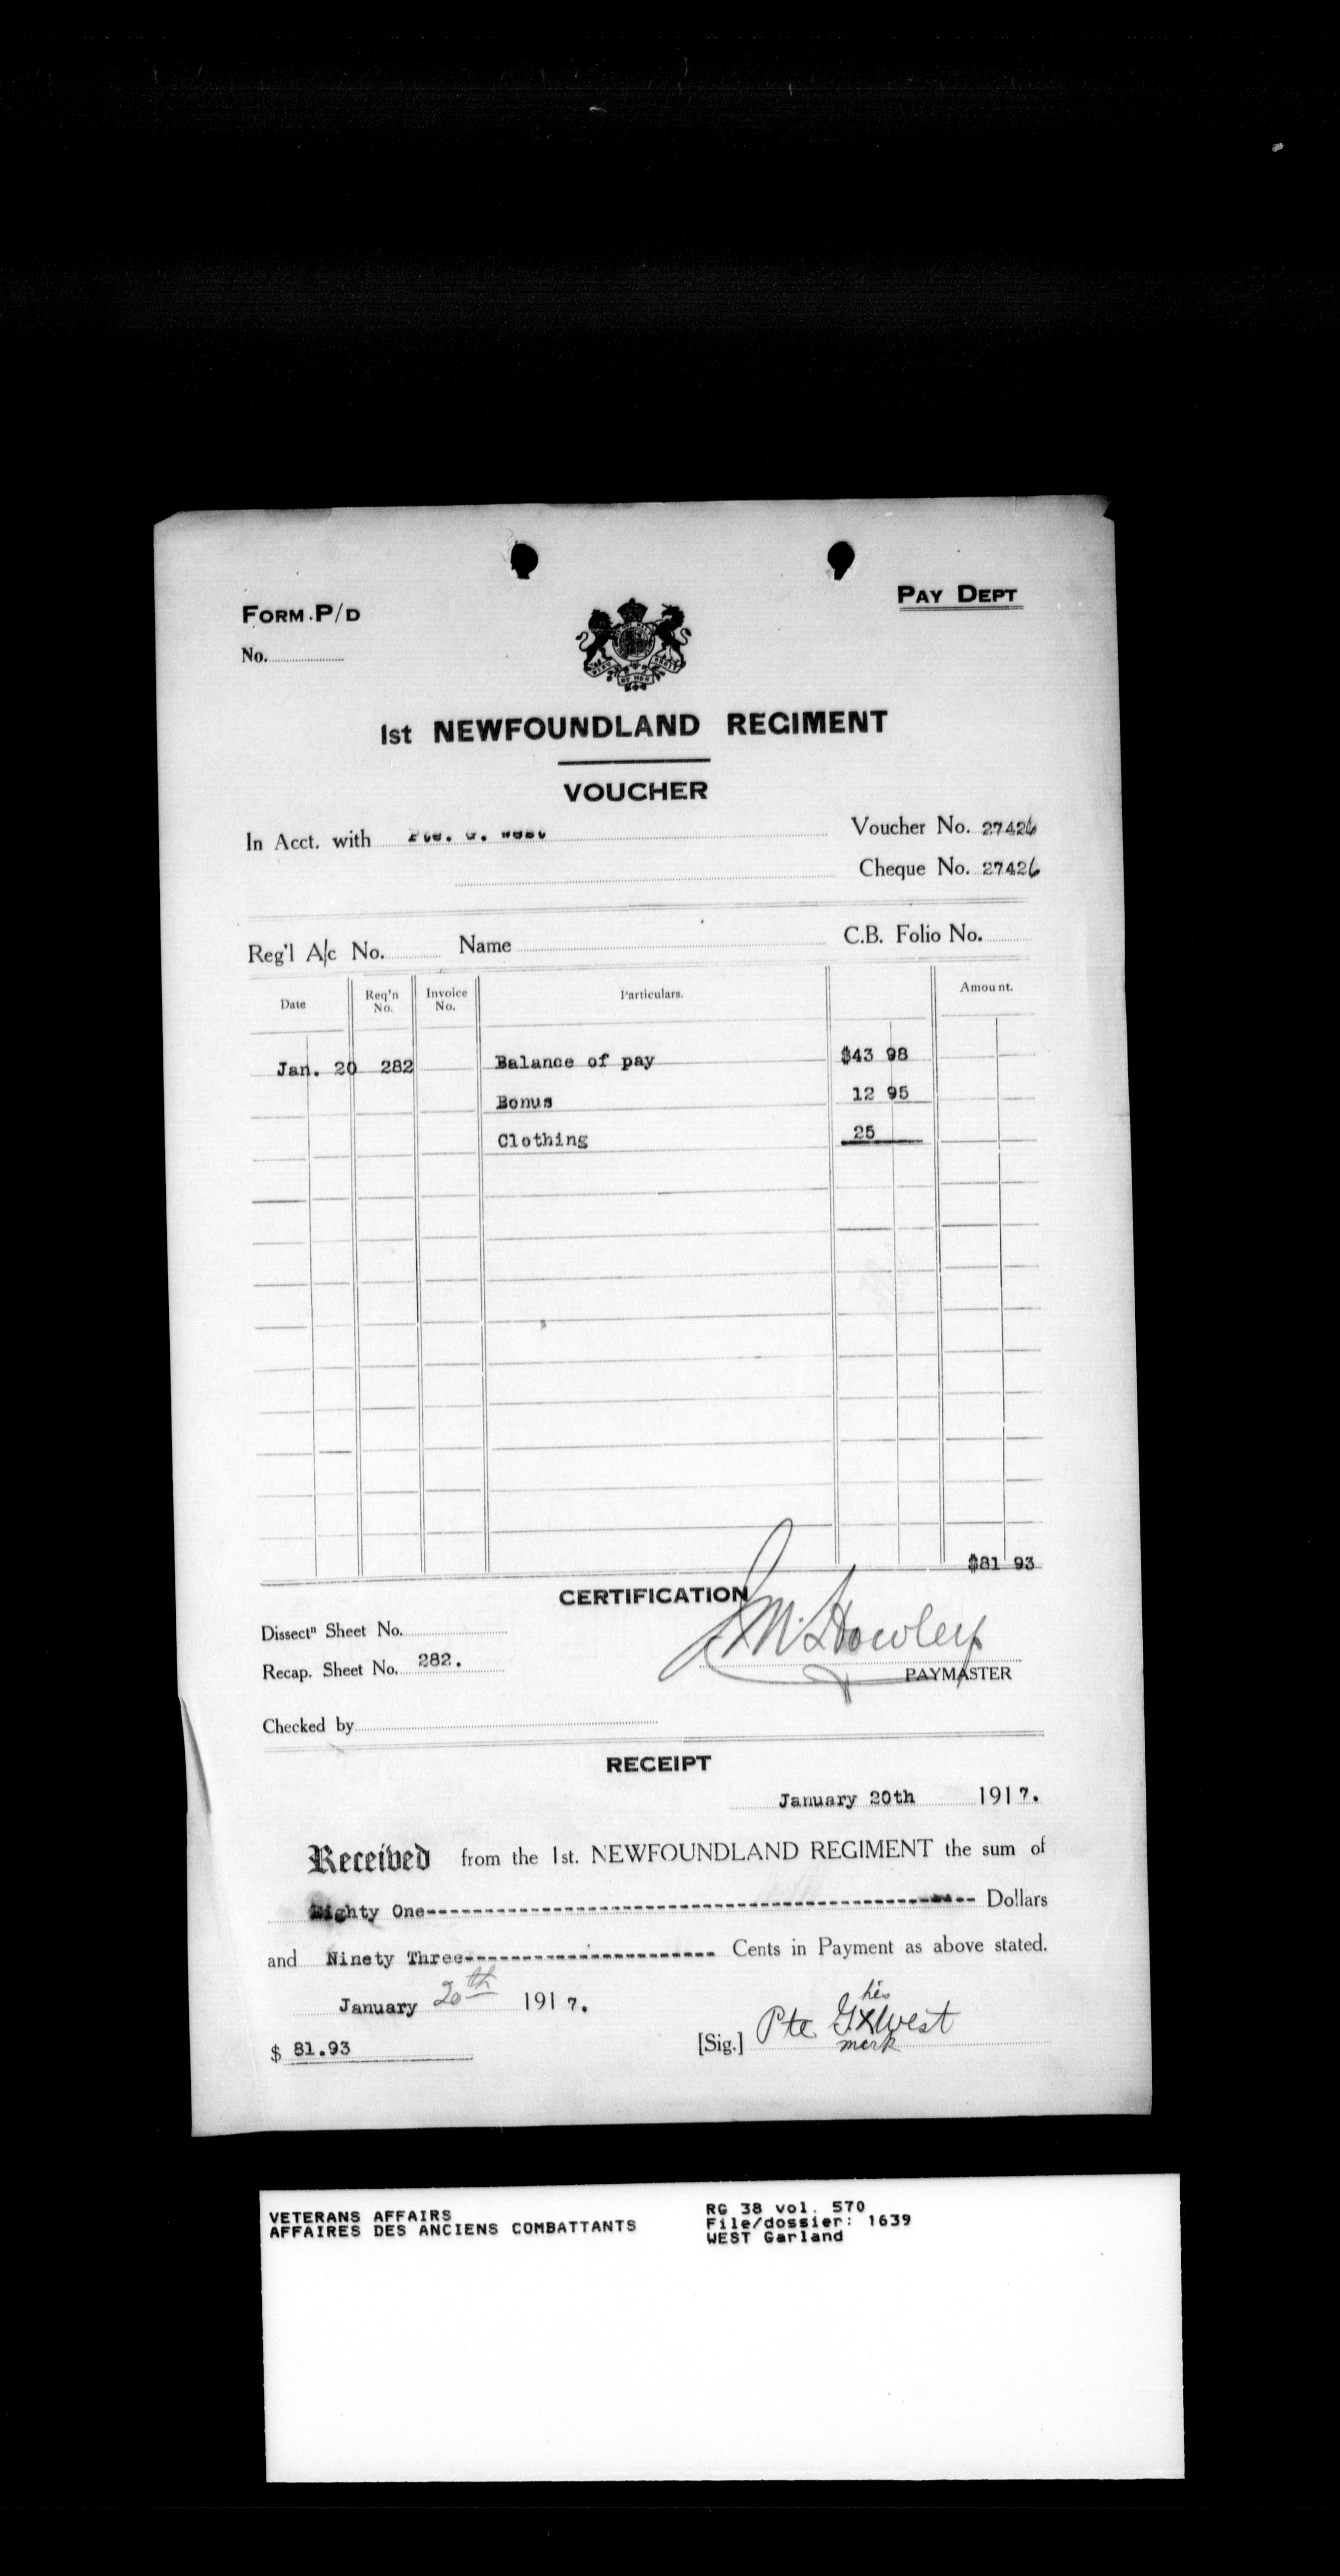 FORM P/D
PAY DEPT
No.
1st NEWFOUNDLAND REGIMENT
VOUCHER
In Acct. with Pte. G. West Voucher No. 27426
Cheque No. 27426
Reg'l A/c No. Name C.B. Folio No.
Date Req'n No. Invoice No. Particulars. Amount.
Jan. 20 282 Balance of pay $43 98
Bonus 12 95
Clothing 25
$81 93
CERTIFICATION
Dissectn Sheet No.
Recap. Sheet No. 282.
Howley
PAYMASTER
Checked by
RECEIPT
January 20th 1917.
Received from the 1st. NEWFOUNDLAND REGIMENT the sum of
Eighty One---------- Dollars
and Ninety Three---------- Cents in Payment as above stated.
January 20th 1917.
his
[Sig.] Pte G x West
mark
$ 81.93
VETERANS AFFAIRS
AFFAIRES DES ANCIENS COMBATTANTS
RG 38 vol. 570
File/dossier: 1639
WEST Garland